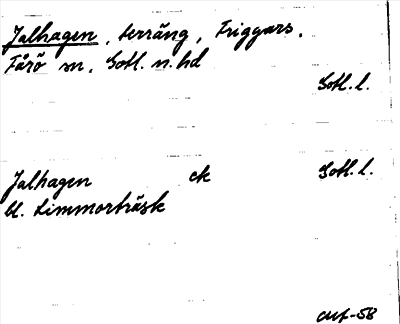 Jalhagen, terräng, Friggars,
Fårö sn, Gotl. n. hd
Gotl. l.
Jalhagen ek Gotl. l.
bl. Limmorträsk